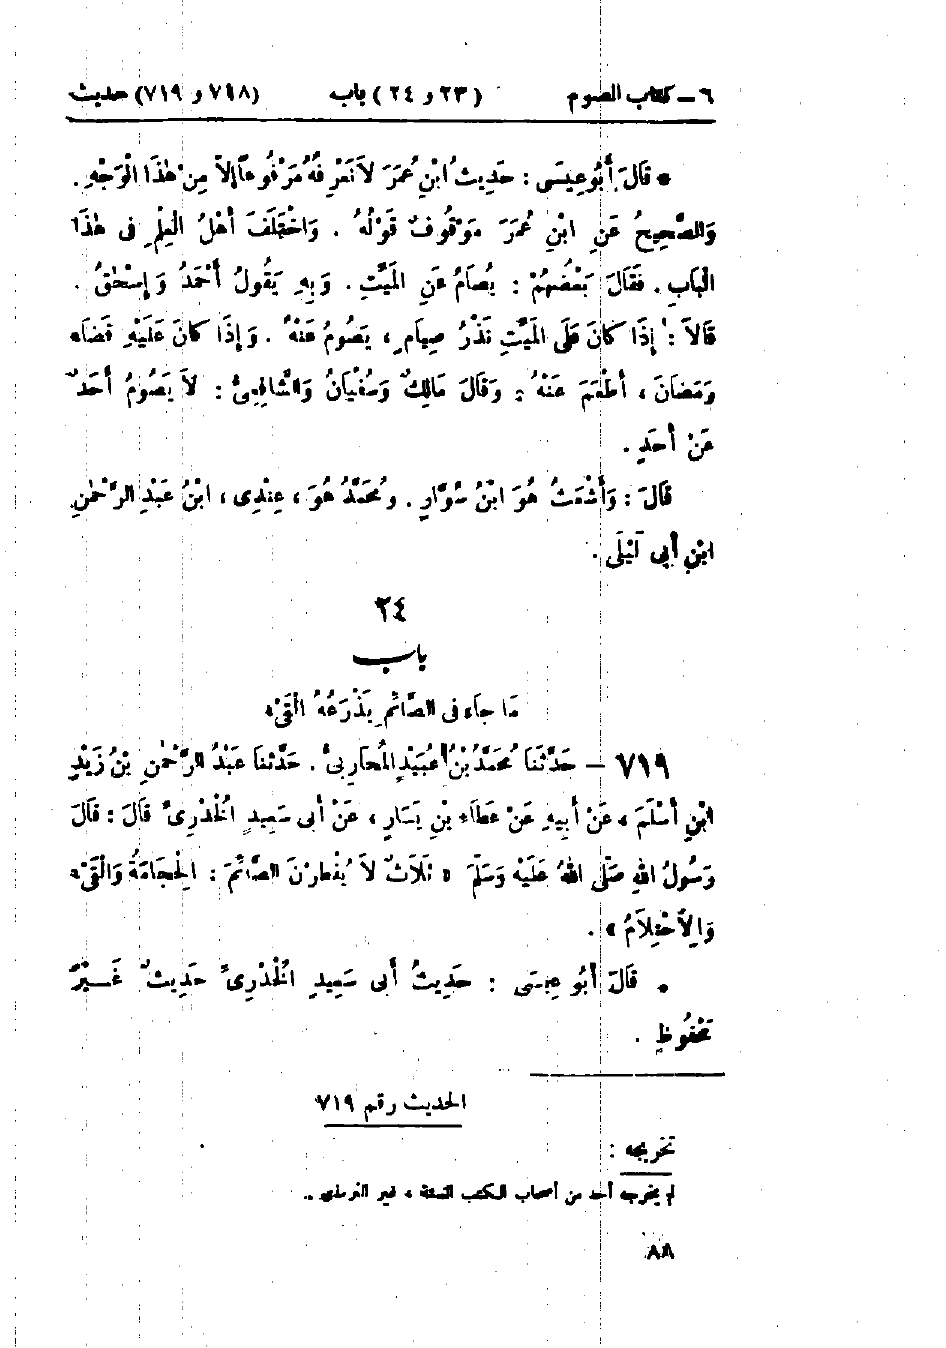 ٦ – كتاب الصوم (٢٣ و ٢٤) باب (٧١٨ و ٧١٩) حديث
• قَالَ أَبُو عِيسَى : حَدِيثُ ابْنِ عُمَرَ لاَ نَعْرِفُهُ مَرْفُوعًا إِلاَّ مِنْ هٰذَا الْوَجْهِ .
وَالصَّحِيحُ عَنِ ابْنِ عُمَرَ مَوْقُوفٌ قَوْلُهُ . وَاخْتَلَفَ أَهْلُ الْعِلْمِ فى هٰذَا
الْبَابِ . فَقَالَ بَعْضُهُمْ : يُصَامُ عَنِ الْمَيِّتِ . وَبِهِ يَقُولُ أَحْمَدُ وَإِسْحٰقُ .
قَالاَ : إِذَا كَانَ عَلَى الْمَيِّتِ نَذْرُ صِيَامٍ ، يَصُومُ عَنْهُ . وَإِذَا كَانَ عَلَيْهِ قَضَاءُ
رَمَضَانَ ، أَطْعَمَ عَنْهُ : وَقَالَ مَالِكٌ وَسُفْيَانُ وَالشَّافِعِىُّ : لاَ يَصُومُ أَحَدٌ
عَنْ أَحَدٍ .
قَالَ : وَأَشْعَثُ هُوَ ابْنُ سَوَّارٍ . وَمُحَمَّدٌ هُوَ ، عِنْدِى ، ابْنُ عَبْدِ الرَّحْمٰنِ
ابْنِ أَبِى لَيْلَى .
٢٤
باب
مَا جَاءَ فى الصَّائِمِ يَذْرَعُهُ الْقَىْءُ
٧١٩ – حَدَّثَنَا مُحَمَّدُ بْنُ عُبَيْدٍ الْمُحَارِبىُّ . حَدَّثَنَا عَبْدُ الرَّحْمٰنِ بْنُ زَيْدِ
ابْنِ أَسْلَمَ ، عَنْ أَبِيهِ عَنْ عَطَاءِ بْنِ يَسَارٍ ، عَنْ أَبى سَعِيدٍ الْخُدْرِىِّ قَالَ : قَالَ
رَسُولُ اللهِ صَلَّى اللهُ عَلَيْهِ وَسَلَّمَ « ثَلاَثٌ لاَ يُفْطِرْنَ الصَّائِمَ : الْحِجَامَةُ وَالْقَىْءُ
وَالاِحْتِلاَمُ » .
• قَالَ أَبُو عِيسَى : حَدِيثُ أَبى سَعِيدٍ الْخُدْرِىِّ حَدِيثٌ غَيْرُ
مَحْفُوظٍ .
الحديث رقم ٧١٩
تخريجه :
لم يخرجه أحد من أصحاب الكتب الستة ، غير الترمذى .
٨٨